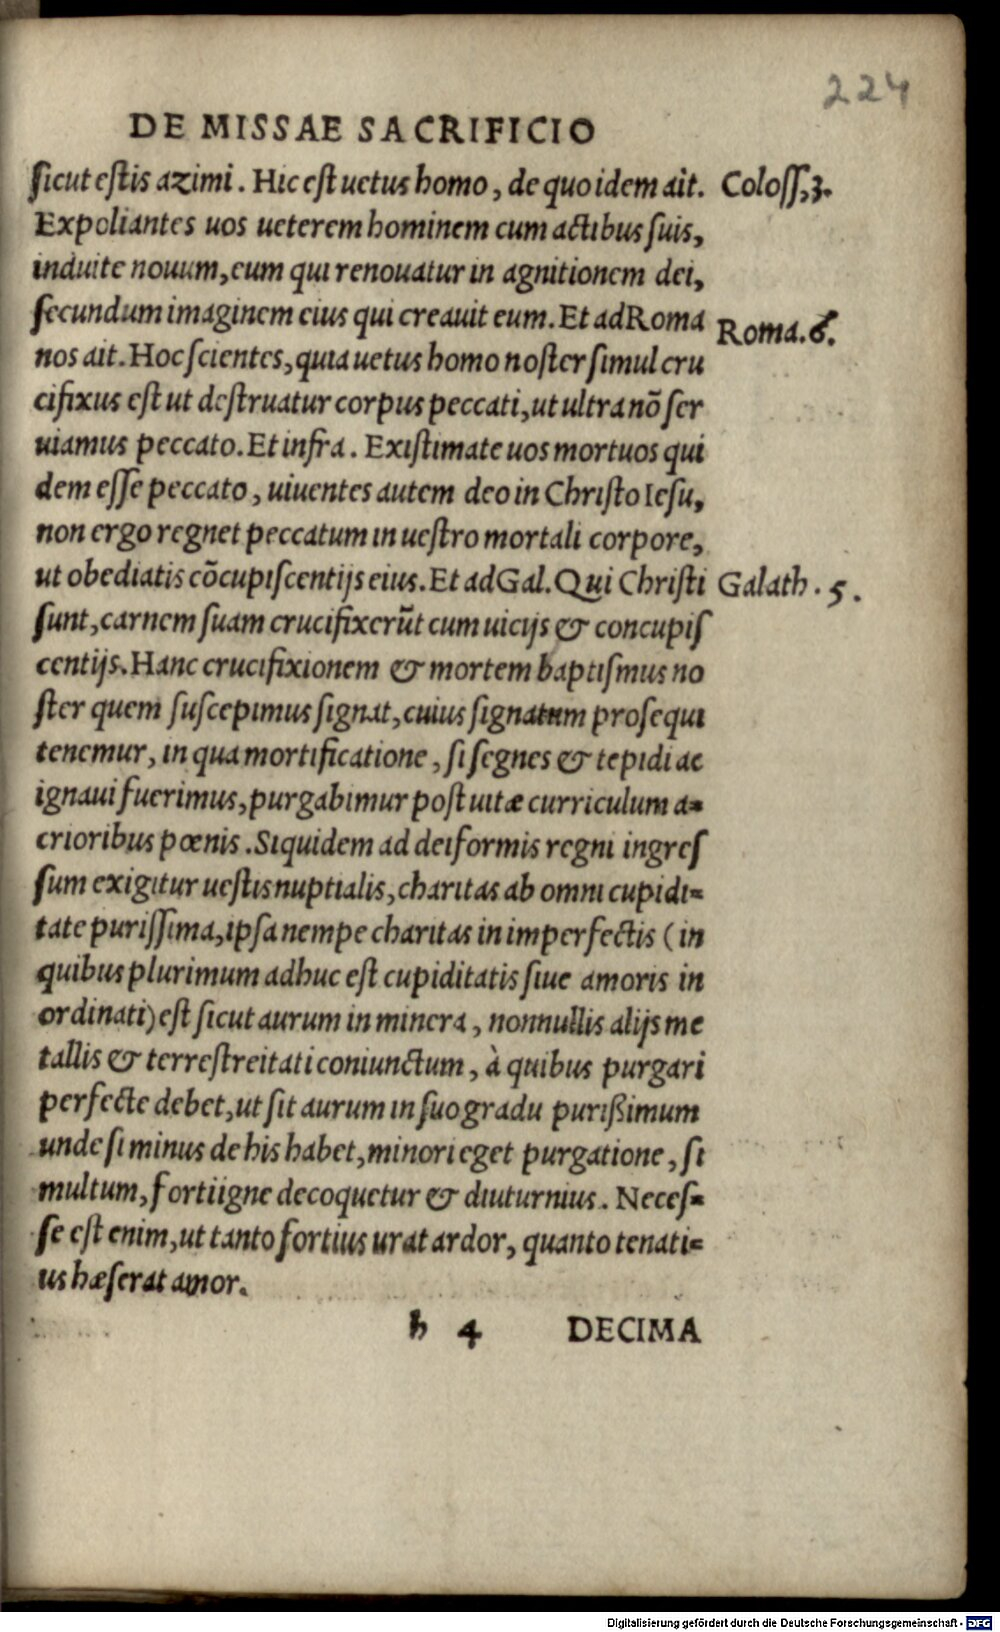 224
DE MISSAE SACRIFICIO
ſicut eſtis azimi. Hic eſt uetus homo, de quo idem ait. Coloſſ. 3.
Expoliantes uos ueterem hominem cum actibus ſuis,
induite nouum, eum qui renouatur in agnitionem dei,
ſecundum imaginem eius qui creauit eum. Et ad Roma Roma. 6.
nos ait. Hoc ſcientes, quia uetus homo noſter ſimul cru
cifixus eſt ut deſtruatur corpus peccati, ut ultra nõ ſer
uiamus peccato. Et infra. Exiſtimate uos mortuos qui
dem eſſe peccato, uiuentes autem deo in Chriſto Ieſu,
non ergo regnet peccatum in ueſtro mortali corpore,
ut obediatis cõcupiſcentijs eius. Et ad Gal. Qui Chriſti Galath. 5.
ſunt, carnem ſuam crucifixerũt cum uicijs & concupiſ
centijs. Hanc crucifixionem & mortem baptiſmus no
ſter quem ſuſcepimus ſignat, cuius ſignatum proſequi
tenemur, in qua mortificatione, ſi ſegnes & tepidi ac
ignaui fuerimus, purgabimur poſt uitæ curriculum a=
crioribus pœnis. Siquidem ad deiformis regni ingreſ
ſum exigitur ueſtis nuptialis, charitas ab omni cupidi=
tate puriſſima, ipſa nempe charitas in imperfectis (in
quibus plurimum adhuc eſt cupiditatis ſiue amoris in
ordinati) eſt ſicut aurum in minera, nonnullis alijs me
tallis & terreſtreitati coniunctum, à quibus purgari
perfecte debet, ut ſit aurum in ſuo gradu purißimum
unde ſi minus de his habet, minori eget purgatione, ſi
multum, forti igne decoquetur & diuturnius. Neceſ=
ſe eſt enim, ut tanto fortius urat ardor, quanto tenati=
us hæſerat amor.
h 4 DECIMA
Digitalisierung gefördert durch die Deutsche Forschungsgemeinschaft - DFG